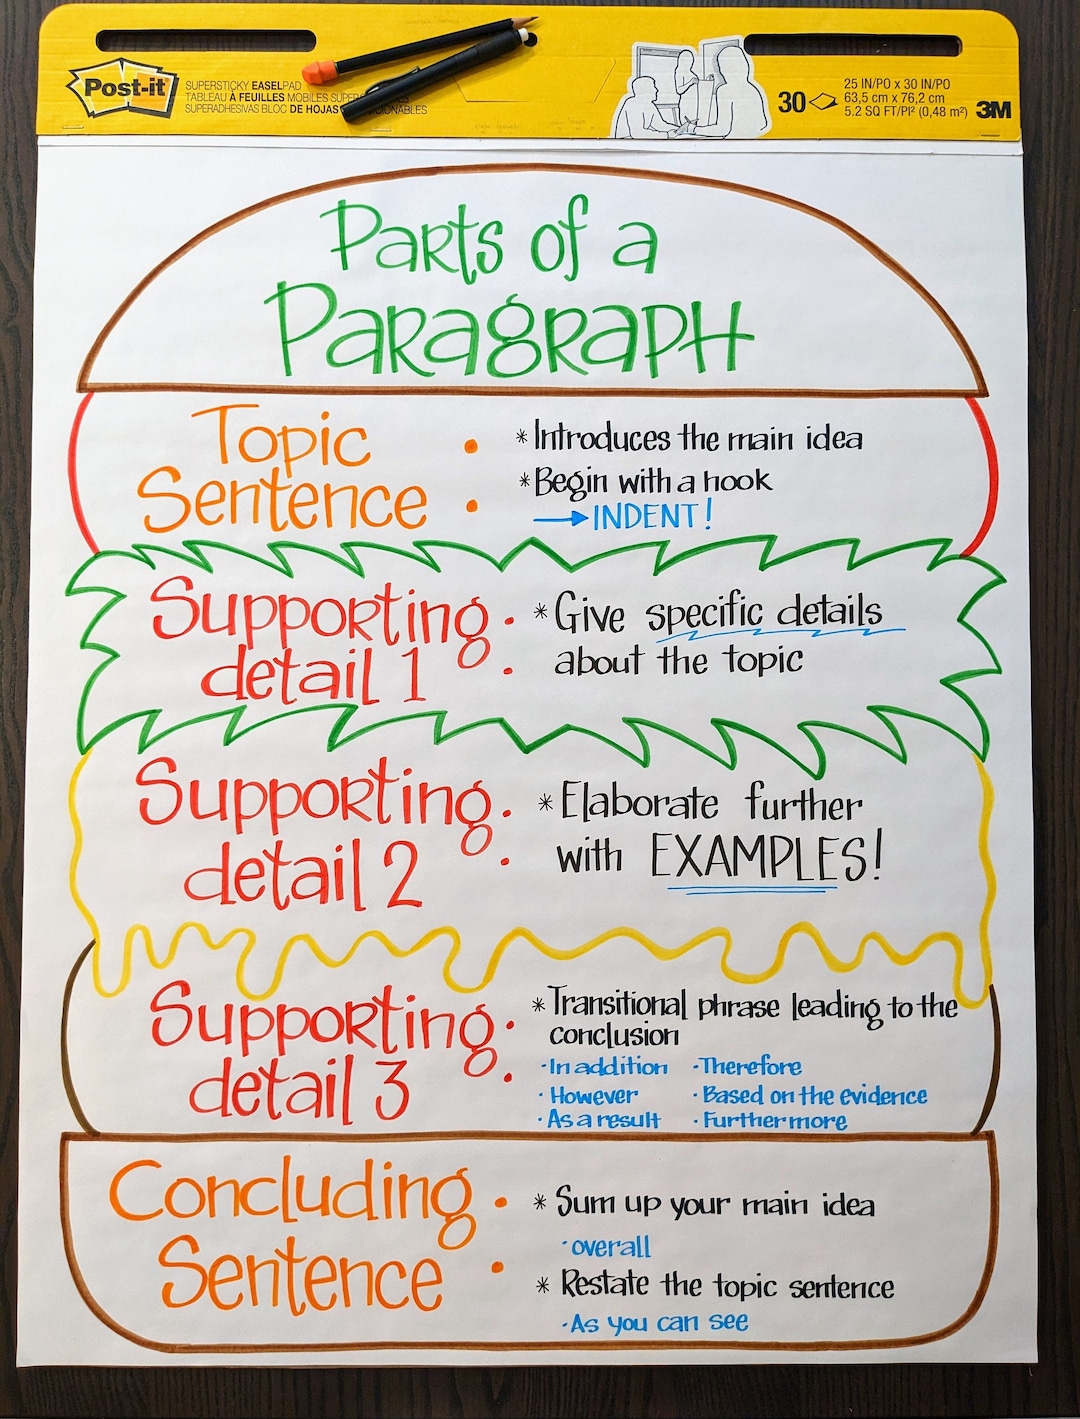 Post-it
SUPERSTICKY EASEL PAD
TABLEAU À FEUILLES MOBILES
SUPERADHESIVAS BLOC DE HOJAS
30
25 IN/PO x 30 IN/PO
63,5 cm x 76,2 cm
5.2 SQ FT/PI² (0,48 m²)
3M
Parts of a
Paragraph
Topic
Sentence :
* Introduces the main idea
* Begin with a hook
→ INDENT!
Supporting
detail 1 :
* Give specific details
about the topic
Supporting
detail 2 :
* Elaborate further
with EXAMPLES!
Supporting
detail 3 :
* Transitional phrase leading to the
conclusion
· In addition · Therefore
· However · Based on the evidence
· As a result · Furthermore
Concluding
Sentence :
* Sum up your main idea
· overall
* Restate the topic sentence
· As you can see